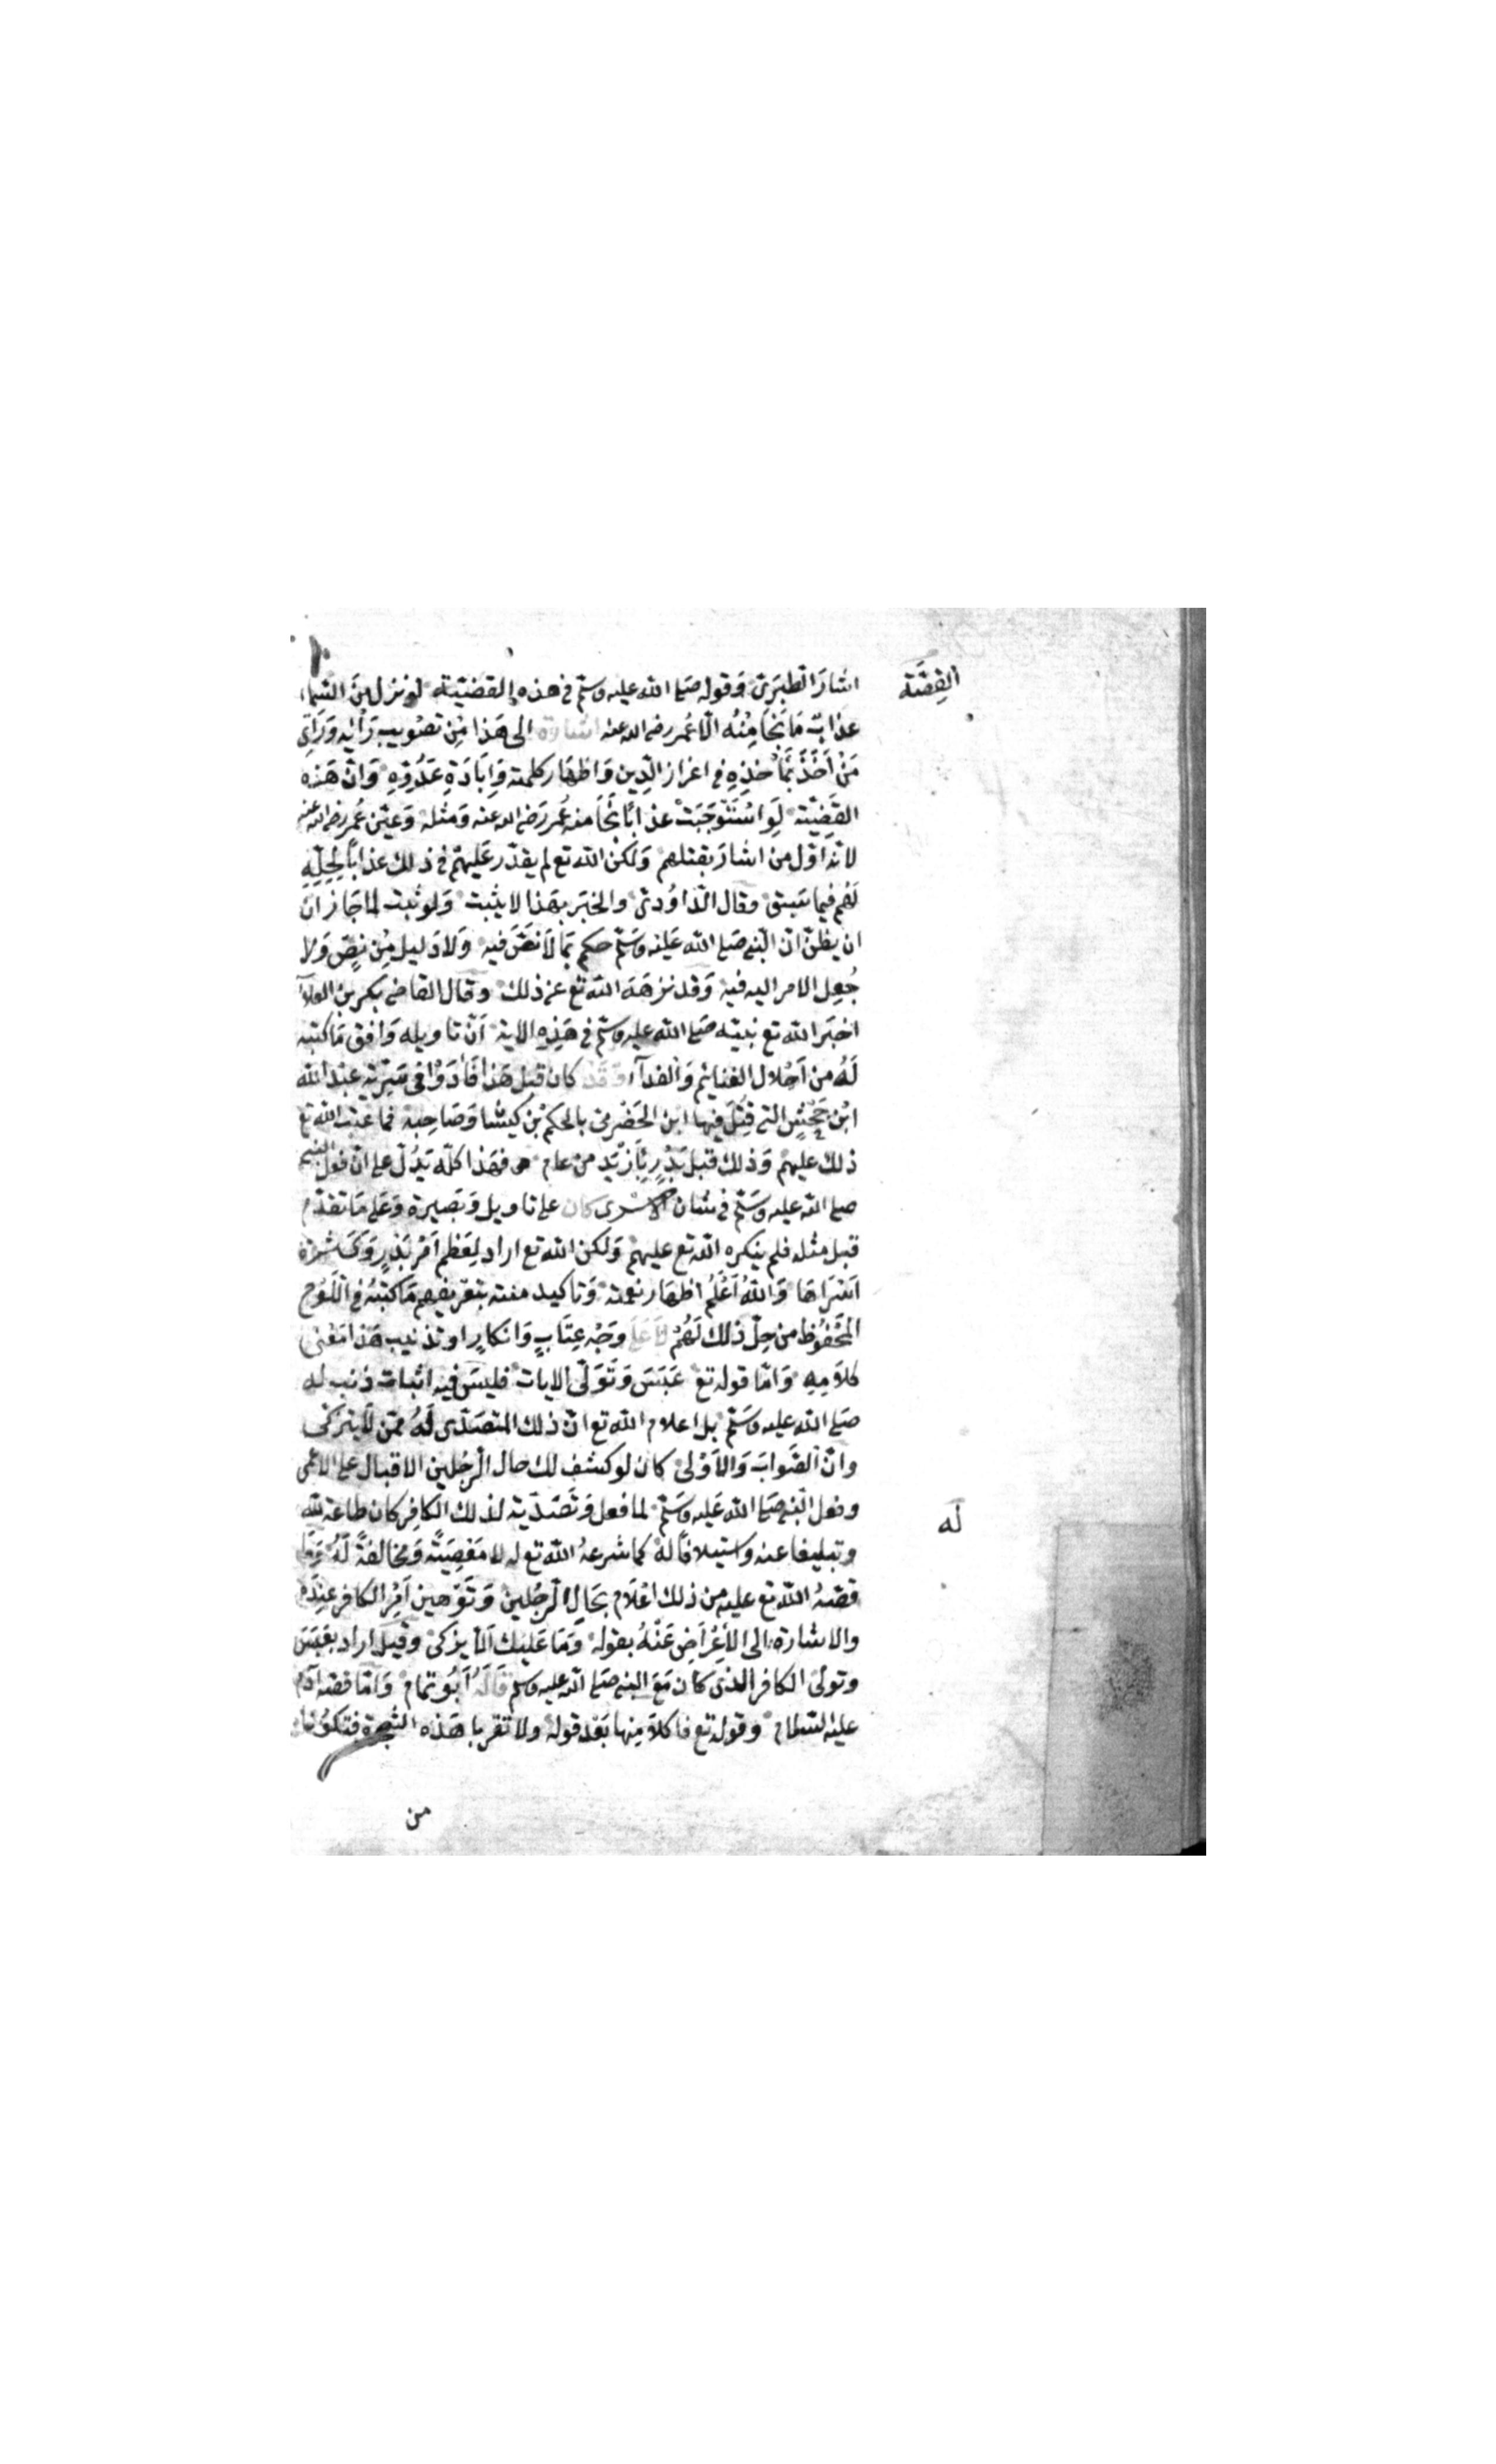 اشارَ الطبرىّ وَقوله صَلى الله عليه وسلّم فى هذه القضيّة لو نزل مِنَ السّماء
القِصَّة
عذابٌ مَا نَجَا مِنْهُ الّا عُمر رضى الله عنه اشارة الى هَذا مِن تصْويب رَأيه وَرَاى
مَنْ اَخَذَ بمَأخذِهِ فى اعزاز الدّين وَاظهَار كلمته وَابَادَةِ عَدُوِّهِ وَانّ هَذِه
القَضِيّة لَوِ اسْتَوْجَبَتْ عذابًا نَجَا منه عُمر رَضى الله عَنه وَمثله وَعيّن عُمر رضى الله عنه
لانّه اوّل من اشارَ بقتلهم وَلكنّ الله تع لم يقدّر عَليهمْ فى ذلك عذابًا لِحِلّهِ
لَهُم فيما سَبق وقال الدّاوُدىّ والخبَر بهَذا لا يثبت وَلو ثبت لما جَاز ان
ان يظنّ انّ النّبى صَلى الله عَليه وَسَلّم حكم بمَا لَا نَصَّ فيه وَلا دَليل مِن نصٍّ وَلا
جُعِل الامر اليه فيه وَقد نزهَهُ الله تع عن ذلك وقال القاضى بكر بن العلآ
اخبَر الله تع نبيّه صَلى الله عليه وسلّم فى هَذِهِ الاية اَنّ تاويله وَافق مَا كتبه
لَهُ من اَحْلال الغنائم وَالفدآء وَقَدْ كان قبل هَذا فَادَوْا فى سَرِيّة عبْد الله
ابْن جَحْشٍ التى قُتِلَ فيها ابن الحَضْرمىّ بالحكم بْن كيسَا وَصَاحِبه فما عتبَ الله تع
ذلك عليهم وَذلك قبل بَدْرٍ بازْيَد من عام فهَذا كلّه يَدُلّ على انّ فعل النّبى
صلى الله عليه وسَلّم فى شان الاسْرى كان على تاويل وَبَصيرة وَعَلى مَا تقدّم
قبل مثله فلم ينكره الله تع عليهمْ وَلكن الله تع اراد لِعَظم اَمْر بَدْرٍ وَكَثرة
اَسْرَاهَا وَاللهُ اَعْلَمُ اظهَار نعمته وَتاكيد منته بتعْريفهم مَا كتبَهُ فى اللّوْح
المَحْفُوظ من حِلّ ذلك لَهُمْ لا عَلى وجْه عِتَابٍ وَانكارٍ او تذنيب هَذا مَعْنى
كلاَمِهِ وَامّا قوله تع عَبَسَ وَتَوَلّى الايات فليسَ فيه اثبات ذنب له
صَلى الله عليه وسَلّم بل اعلام الله تع انّ ذلك المتصَدّى لَهُ ممّن لا يتزكّى
وانّ الصَّوابَ وَالاَوْلى كان لو كشف لك حال الرّجُلين الاقبال على الاعْمى
وفعل النّبى صَلى الله عَليه وَسَلّم لما فعل وَتَصَدّيهِ لذلك الكافِر كان طاعة لله
له
وتبليغا عنه واستيلافًا له كما شرعهُ الله تع له لا مَعْصِيَةً وَمخالفةً لَهُ وَمَا
قصّهُ الله تع عليه من ذلك اعْلام بحَالِ الرّجُلين وَتوْهين اَمْرِ الكافر عِندَه
والاشارة الى الاِعْرَاضِ عَنْهُ بقوله وَمَا عَليْك اَلّا يزكّى وقيلَ اراد بعَبَسَ
وتولّى الكافر الذى كان مَعَ النبى صَلى الله عليه وسلم قَالَهُ اَبُو تمام وَامّا قصّة آدَم
عليْه السّلام وقوله تع فاكلا مِنها بَعْد قوله ولا تقربا هَذه الشّجرة فتكونا
من